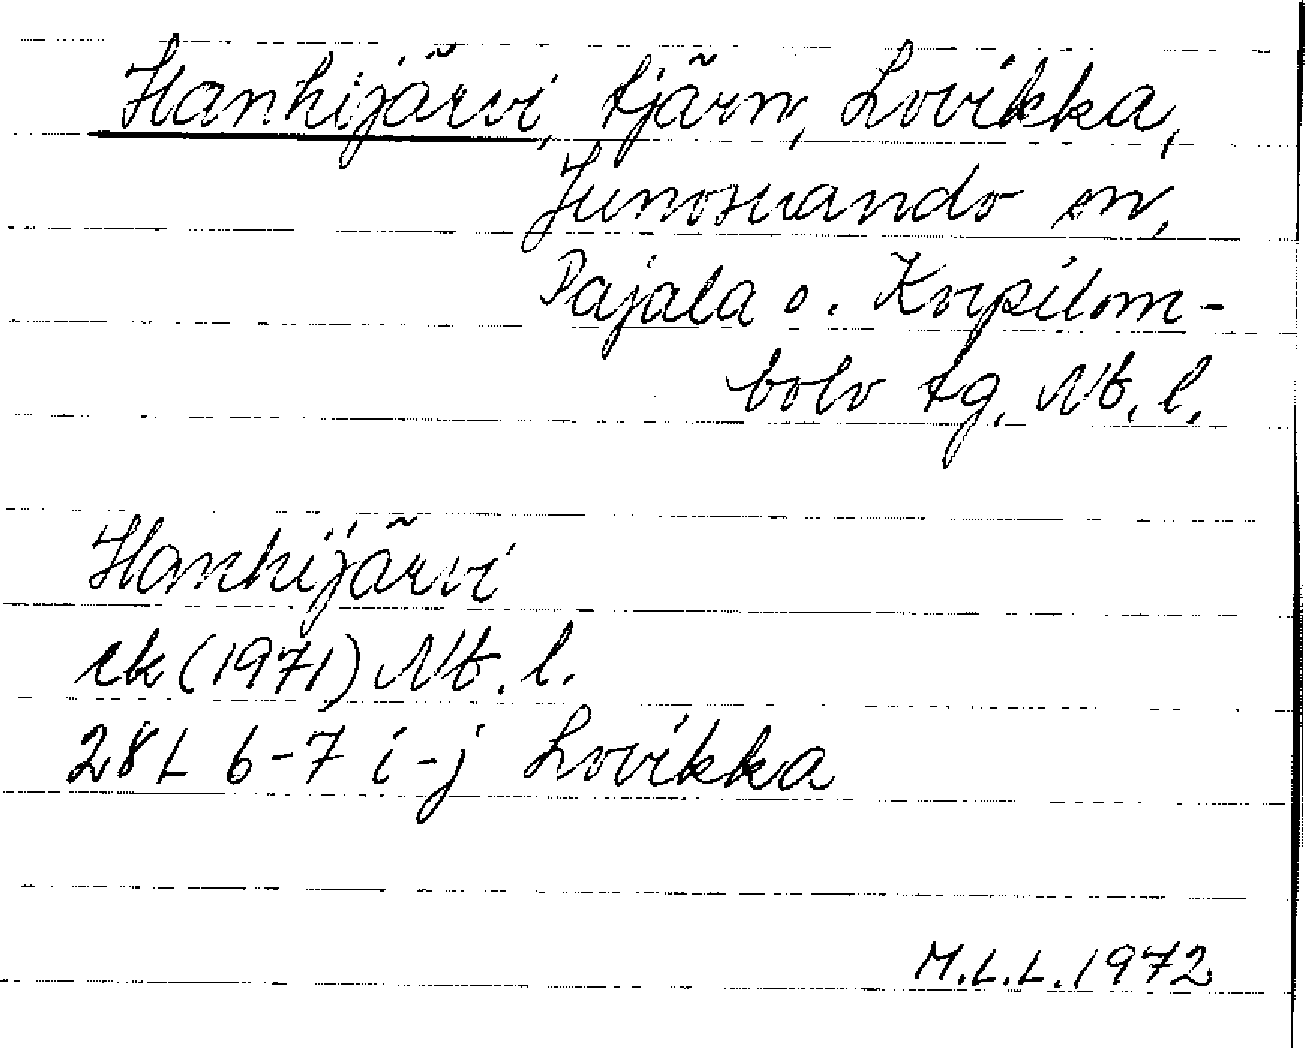 Hanhijärvi, tjärn, Lovikka,
Junosuando sn,
Pajala o. Korpilom-
bolo tg. Nb. l.
Hanhijärvi
ek (1971) Nb. l.
28L 6-7 i-j Lovikka
M.L.L. 1972